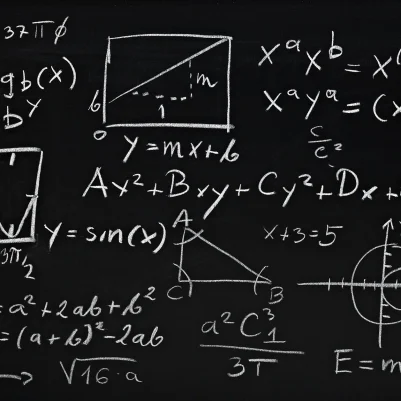 37πϕ
gb(x)
b^y
b
m
1
0
y=mx+b
x^a x^b = x
x^a y^a = (x
c/c²
Ax²+Bxy+Cy²+Dx+
y=sin(x)
3π/2
A
C
B
x+3=5
= a²+2ab+b²
=(a+b)²-2ab
√16·a
a²C³₁/3T
E=m